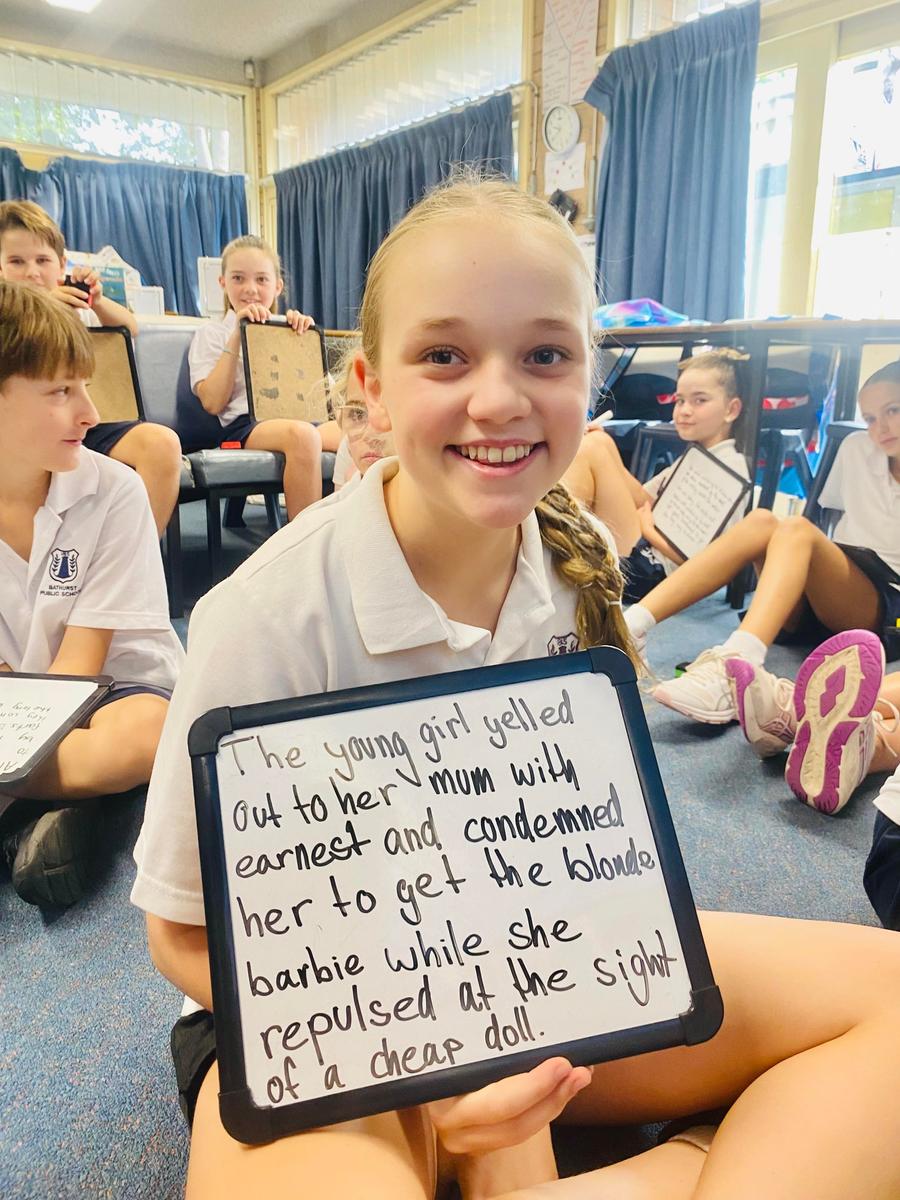 The young girl yelled
out to her mum with
earnest and condemned
her to get the blonde
barbie while she
repulsed at the sight
of a cheap doll.
BATHURST
PUBLIC SCHOOL